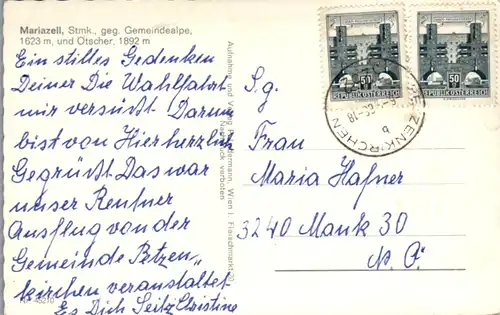 Mariazell, Stmk., geg. Gemeindealpe,
1623 m, und Ötscher, 1892 m
Ein stilles Gedenken
Deiner Die Wahlfahrt
mir versüßt. Darum
bist von Hier herzlich
Gegrüßt. Das war
unser Rentner
Ausflug von der
Gemeinde Petzen"
kirchen veranstaltet
Es Dich Seitz Christine
Aufnahme und Verlag
Wien I, Fleischmarkt
Nachdruck verboten
S.g.
Frau
Maria Hafner
3240 Mank 30
N.Ö.
50
REPUBLIK ÖSTERREICH
50
REPUBLIK ÖSTERREICH
ZENKIRCHEN
b